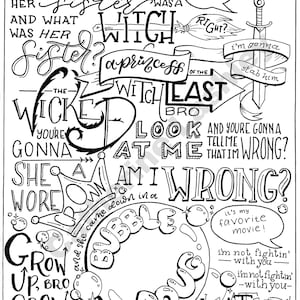 HER Sister WAS A
AND WHAT WITCH RIGHT?
WAS HER
Sister?
a princess
i'm gonna
stab him
THE OF THE
WICKED WITCH EAST
BRO
YOU'RE
GONNA LOOK
AT ME
AND YOU'RE GONNA
TELL ME
THAT I'M WRONG?
AM I WRONG?
SHE
WORE A
and she came down in a
BUBBLE
it's my
favorite
movie!
GROW
UP, BRO
GROW
DOUG
i'm not fightin'
with you
i'm not fightin'
with you